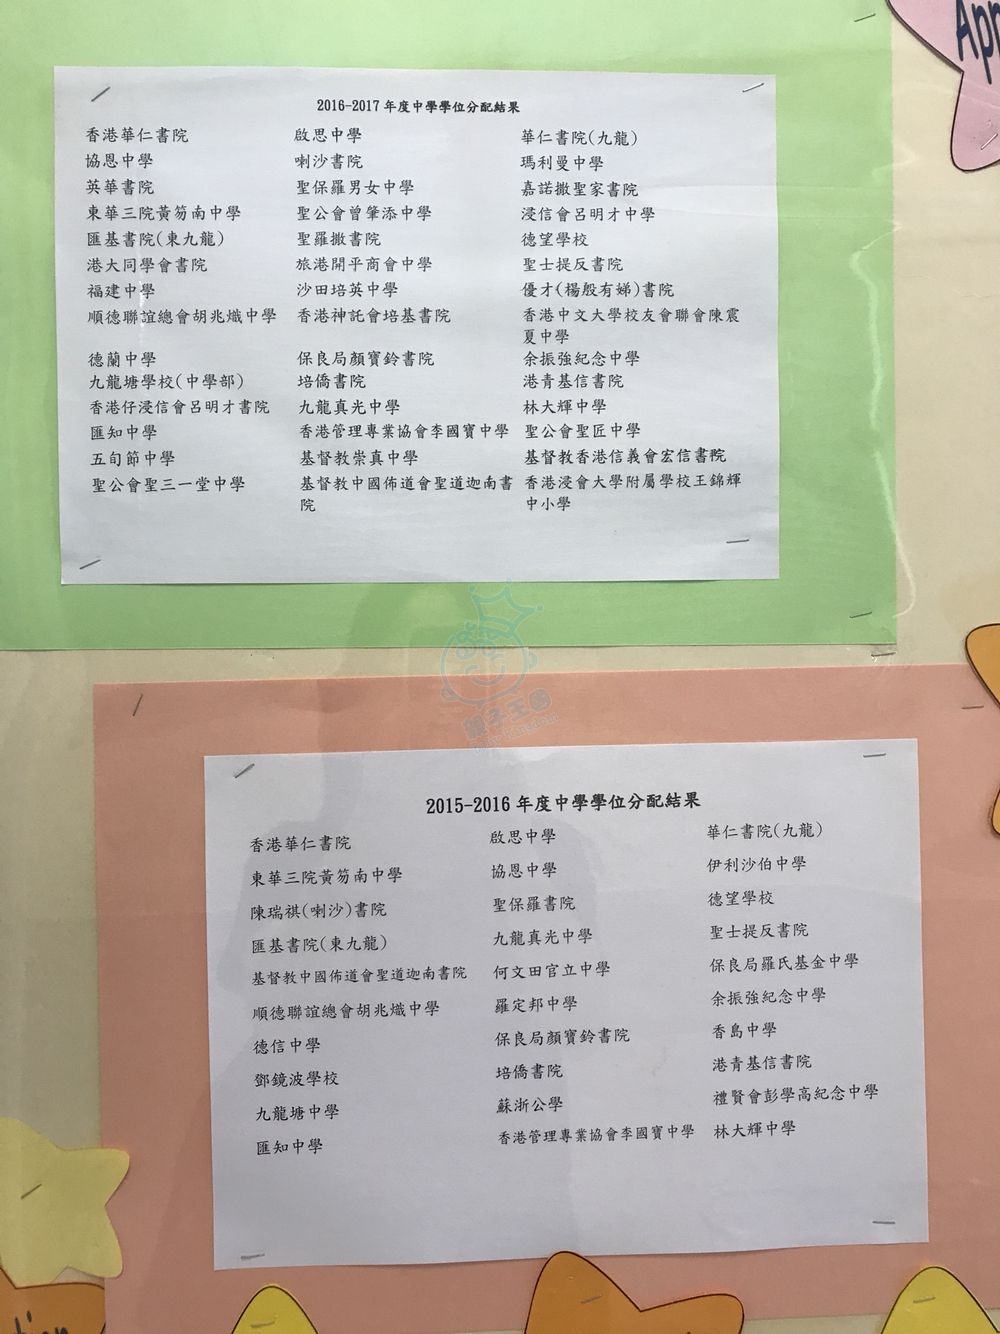 App
2016-2017 年度中學學位分配結果
香港華仁書院 啟思中學 華仁書院(九龍)
協恩中學 喇沙書院 瑪利曼中學
英華書院 聖保羅男女中學 嘉諾撒聖家書院
東華三院黃笏南中學 聖公會曾肇添中學 浸信會呂明才中學
匯基書院(東九龍) 聖羅撒書院 德望學校
港大同學會書院 旅港開平商會中學 聖士提反書院
福建中學 沙田培英中學 優才(楊殷有娣)書院
順德聯誼總會胡兆熾中學 香港神託會培基書院 香港中文大學校友會聯會陳震
夏中學
德蘭中學 保良局顏寶鈴書院 余振強紀念中學
九龍塘學校(中學部) 培僑書院 港青基信書院
香港仔浸信會呂明才書院 九龍真光中學 林大輝中學
匯知中學 香港管理專業協會李國寶中學 聖公會聖匠中學
五旬節中學 基督教崇真中學 基督教香港信義會宏信書院
聖公會聖三一堂中學 基督教中國佈道會聖道迦南書 香港浸會大學附屬學校王錦輝
院 中小學
親子王國
2015-2016 年度中學學位分配結果
香港華仁書院 啟思中學 華仁書院(九龍)
東華三院黃笏南中學 協恩中學 伊利沙伯中學
陳瑞祺(喇沙)書院 聖保羅書院 德望學校
匯基書院(東九龍) 九龍真光中學 聖士提反書院
基督教中國佈道會聖道迦南書院 何文田官立中學 保良局羅氏基金中學
順德聯誼總會胡兆熾中學 羅定邦中學 余振強紀念中學
德信中學 保良局顏寶鈴書院 香島中學
鄧鏡波學校 培僑書院 港青基信書院
九龍塘中學 蘇浙公學 禮賢會彭學高紀念中學
匯知中學 香港管理專業協會李國寶中學 林大輝中學